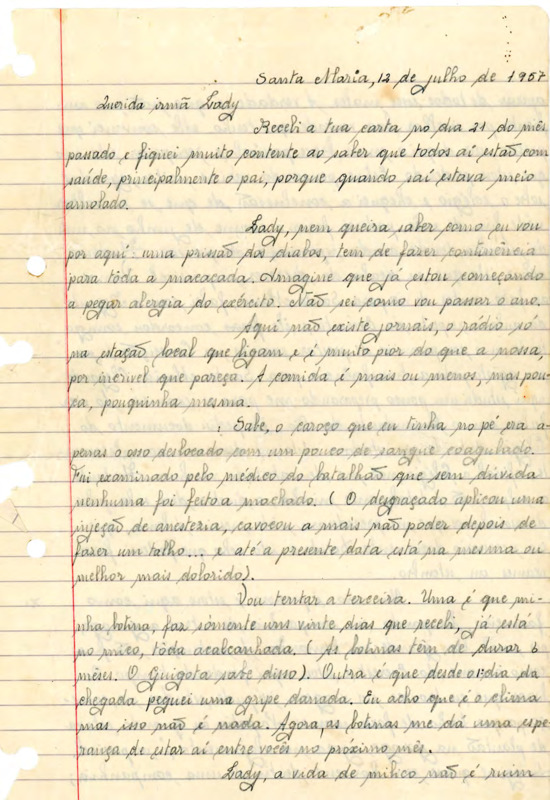 Santa Maria, 12 de julho de 1957
Querida irmã Lady
Recebi a tua carta no dia 21 do mês
passado e fiquei muito contente ao saber que todos aí estão com
saúde, principalmente o pai, porque quando saí estava meio
amolado.
Lady, nem queira saber como eu vou
por aqui: uma prissão dos diabos, tem de fazer continência
para tôda a macacada. Imagine que já estou começando
a pegar alergia do exército. Não sei como vou passar o ano.
Aqui não existe jornais, o rádio só
na estação local que ligam e é muito pior do que a nossa,
por incrivel que pareça. A comida é mais ou menos, mas pou-
ca, pouquinha mesma.
Sabe, o caroço que eu tinha no pé era a-
penas o osso deslocado com um pouco de sangue coagulado.
Fui examinado pelo médico do batalhão que sem dúvida
nenhuma foi feito a machado. ( O desgraçado aplicou uma
injeção de anestezia, cavocou a mais não poder depois de
fazer um talho... e até a presente data está na mesma ou
melhor mais dolorido).
Vou tentar a terceira. Uma é que mi-
nha botina, faz sòmente uns vinte dias que recebi, já está
no mico, tôda acalcanhada. ( As botinas têm de durar 6
mêses. O Guigota sabe disso). Outra é que desde o 1º dia da
chegada peguei uma gripe danada. Eu acho que é o clima
mas isso não é nada. Agora, as botinas me dá uma espe-
rança de estar aí entre vocês no próximo mês.
Lady, a vida de milico não é ruim